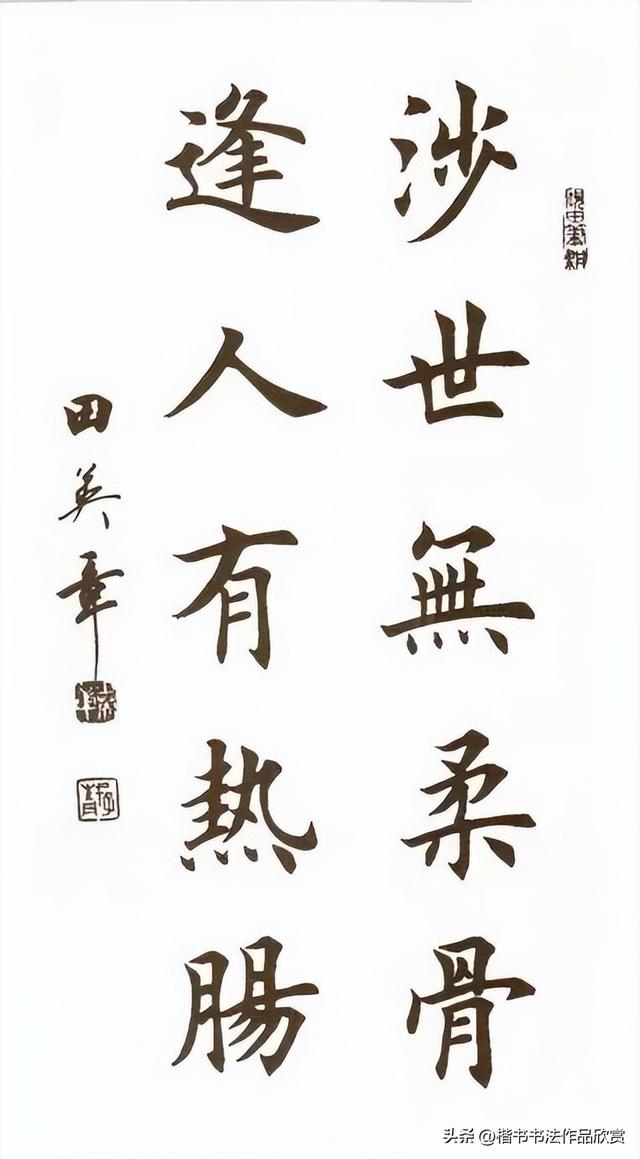 沙世無柔骨
逢人有热腸
田英章
头条 @楷书书法作品欣赏